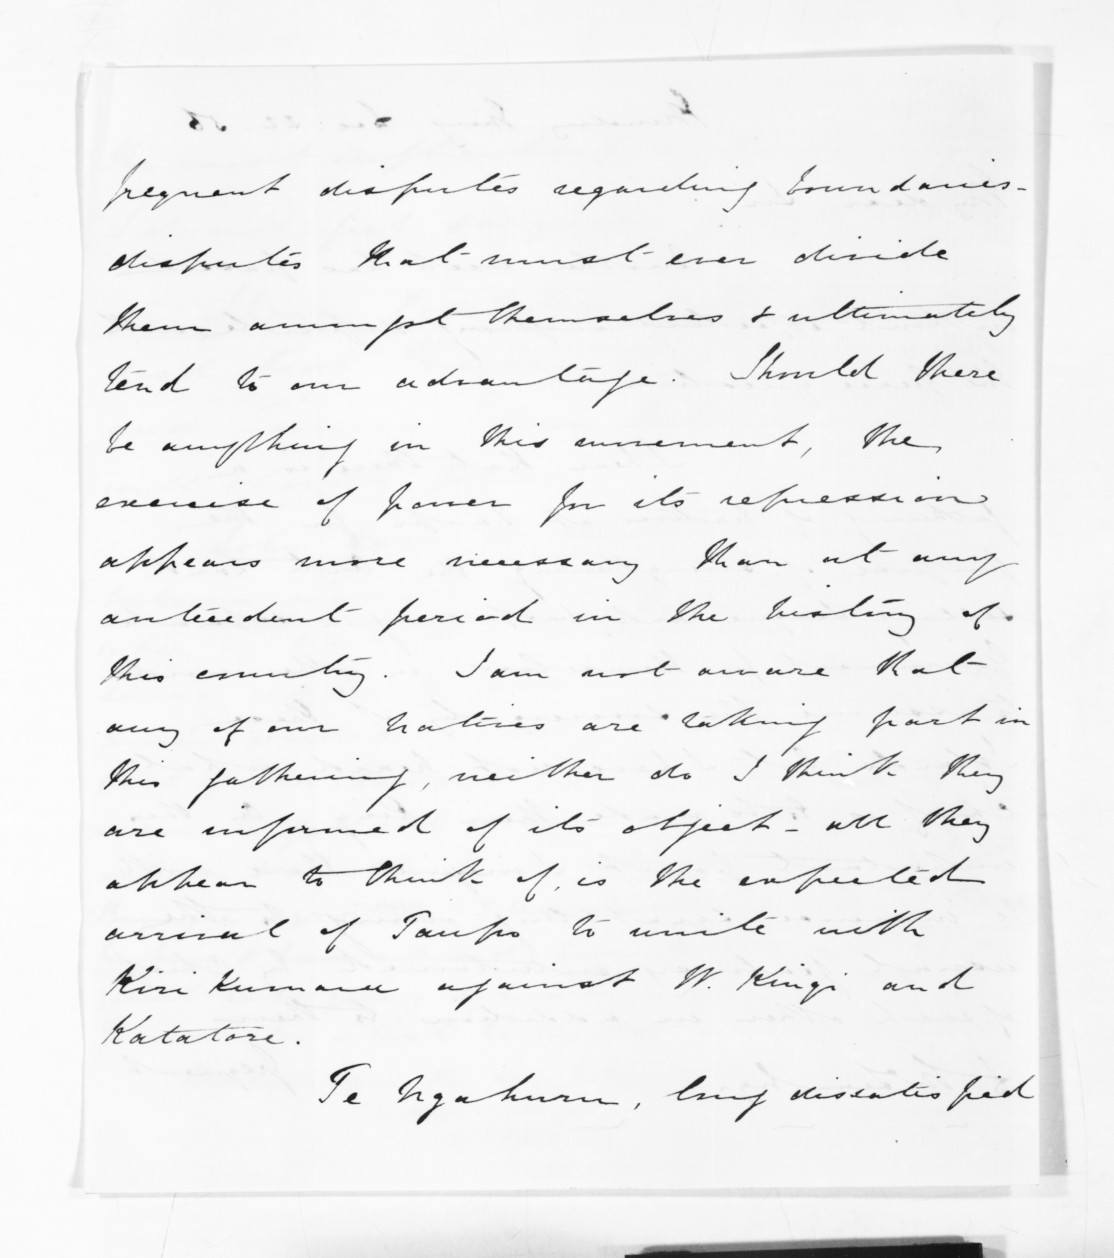 frequent disputes regarding boundaries -
disputes that must ever divide
them amongst themselves & ultimately
tend to our advantage. Should there
be anything in this movement, the
exercise of power for its repression
appears more necessary than at any
antecedent period in the history of
this country. I am not aware that
any of our natives are taking part in
this gathering, neither do I think they
are informed of its object - all they
appear to think of, is the expected
arrival of Taupo to unite with
Kiri Kumara against W. Kingi and
Katatore.
Te Ngahuru, long dissatisfied